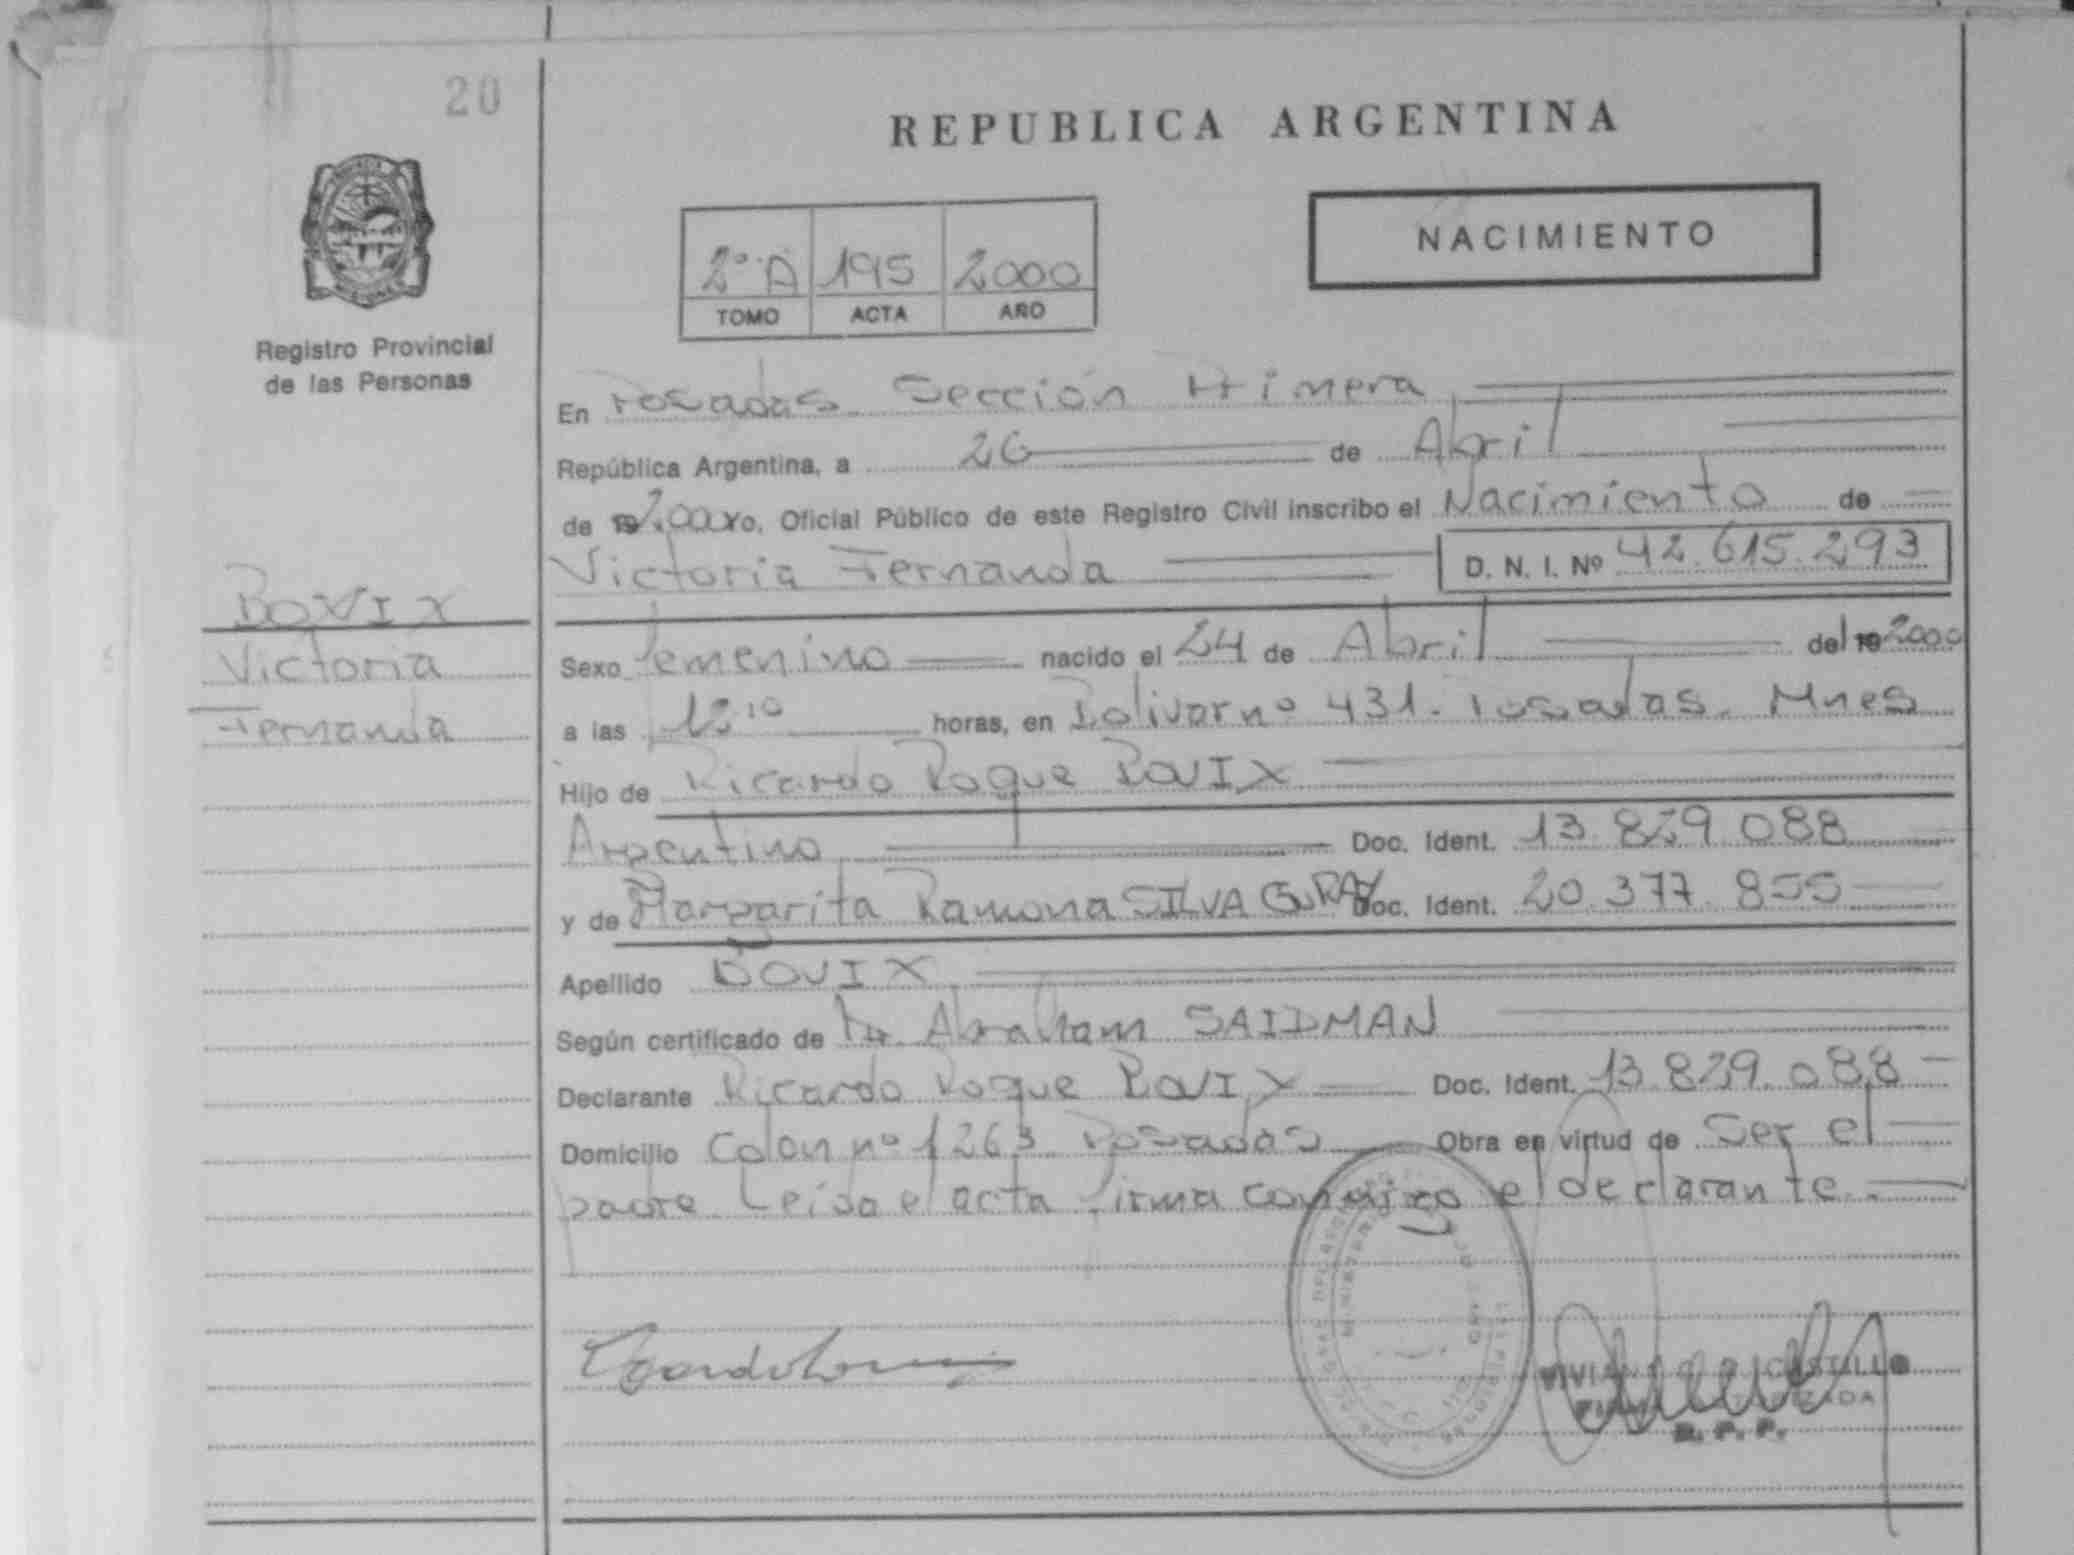 20
REPUBLICA ARGENTINA
NACIMIENTO
2º A 195 2000
TOMO ACTA AÑO
Registro Provincial
de las Personas
En Posadas Sección Primera
República Argentina, a 26 de Abril
de 2000 yo, Oficial Público de este Registro Civil inscribo el Nacimiento de
Victoria Fernanda D. N. I. Nº 42.615.293
BOVIX
Victoria
Fernanda
Sexo femenino nacido el 24 de Abril del 19 2000
a las 12 10 horas, en Bolivar nº 431. Posadas. Mnes
Hijo de Ricardo Roque BOVIX
Argentino Doc. Ident. 13.829.088
y de Margarita Ramona SILVA Doc. Ident. 20.377.855
Apellido BOVIX
Según certificado de Dr. Abraham SAIDMAN
Declarante Ricardo Roque BOVIX Doc. Ident. 13.829.088
Domicilio Colon nº 1263 Posadas Obra en virtud de Ser el
padre Leida el acta firma conmigo el declarante.
CASTILLO
R. P. P.